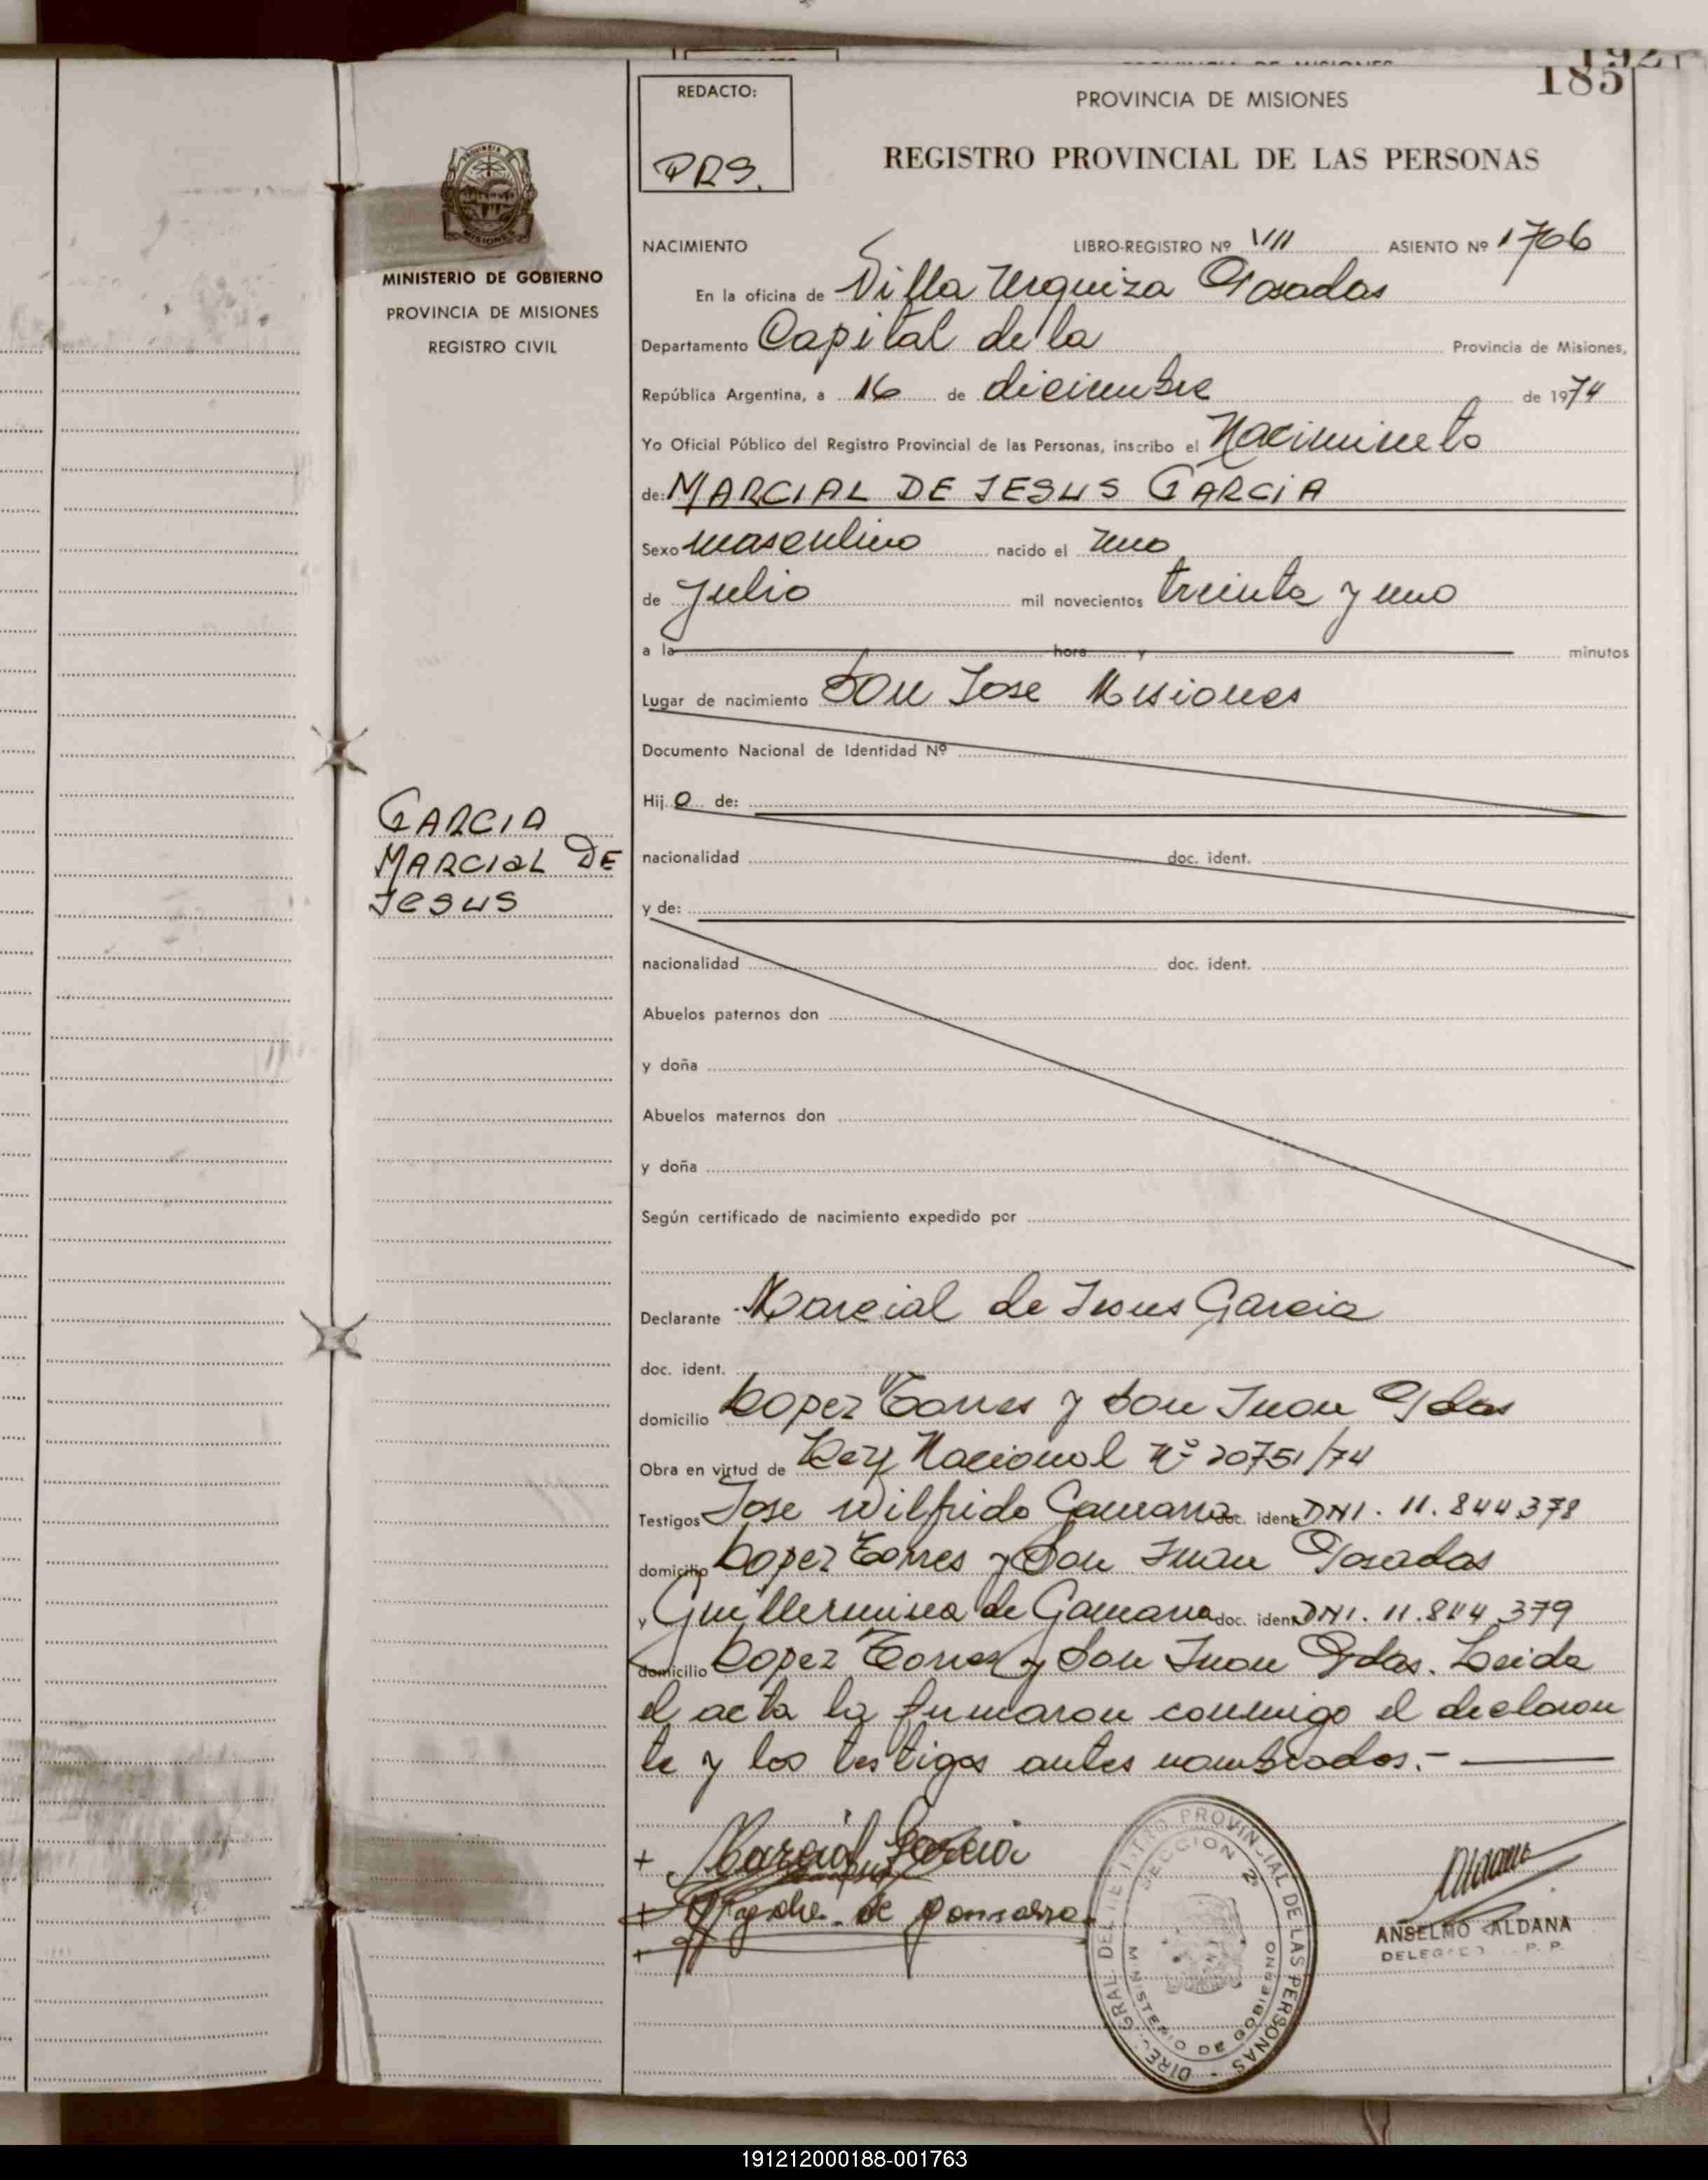 192
185
REDACTO:
PRS.
PROVINCIA DE MISIONES
REGISTRO PROVINCIAL DE LAS PERSONAS
MINISTERIO DE GOBIERNO
PROVINCIA DE MISIONES
REGISTRO CIVIL
NACIMIENTO LIBRO-REGISTRO Nº VIII ASIENTO Nº 1706
En la oficina de Villa Urquiza Posadas
Departamento Capital de la Provincia de Misiones,
República Argentina, a 16 de diciembre de 1974
Yo Oficial Público del Registro Provincial de las Personas, inscribo el Nacimineto
de: MARCIAL DE JESUS GARCIA
Sexo masculino nacido el uno
de Julio mil novecientos treinta y uno
a la hora y minutos
Lugar de nacimiento San Jose Misiones
Documento Nacional de Identidad Nº
Hij o de:
GARCIA
MARCIAL DE
JESUS
nacionalidad doc. ident.
y de:
nacionalidad doc. ident.
Abuelos paternos don
y doña
Abuelos maternos don
y doña
Según certificado de nacimiento expedido por
Declarante Marcial de Jesus Garcia
doc. ident.
domicilio Lopez Torres y San Juan Pdas
Obra en virtud de Ley Nacional Nº 20751/74
Testigos Jose Wilfrido Gamarra doc. ident. DNI. 11.844.378
domicilio Lopez Torres y San Juan Posadas
y Guillermina de Gamarra doc. ident. DNI. 11.844.379
domicilio Lopez Torres y San Juan Pdas. Leida
el acta la firmaron conmigo el declaran
te y los testigos antes nombrados.-
+ Marcial Garcia
+ de Gamarra
+
DIREC. GRAL. DEL REGISTRO PROVINCIAL DE LAS PERSONAS
SECCION 2ª
MINISTERIO DE GOBIERNO
Aldana
ANSELMO ALDANA
DELEGADO R. P. P.
191212000188-001763